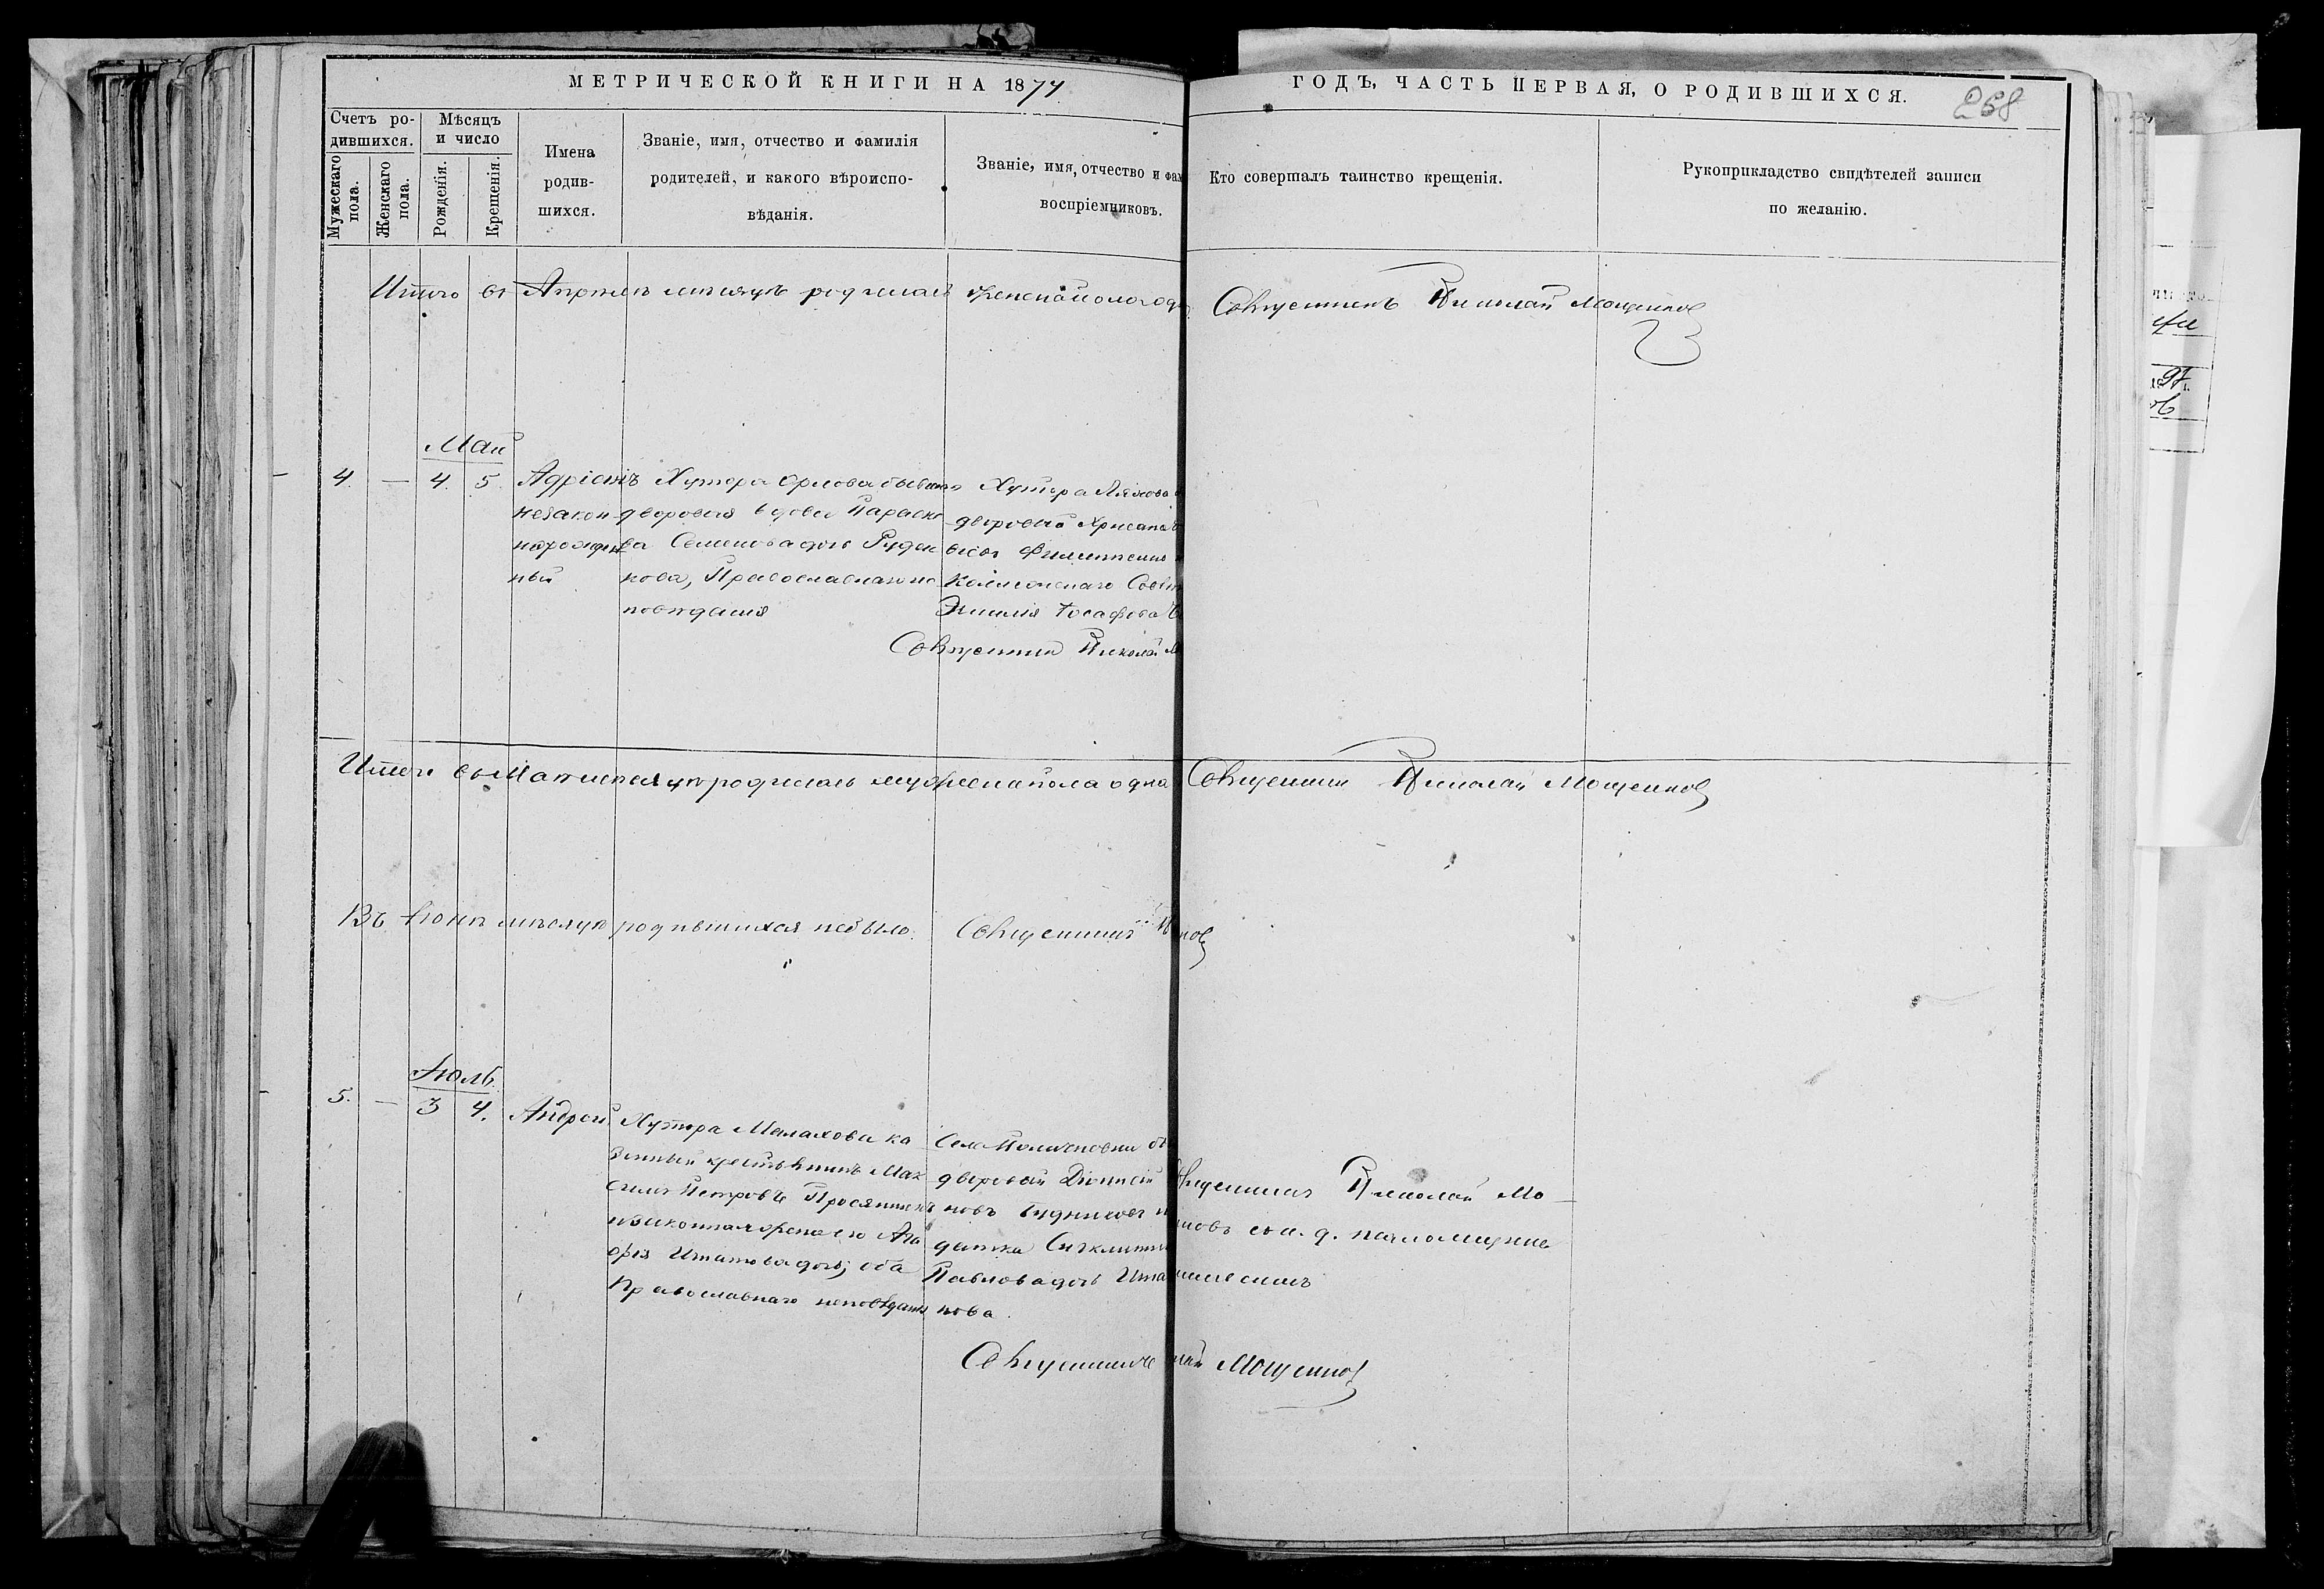 МЕТРИЧЕСКОЙ КНИГИ НА 1874
ГОДЪ, ЧАСТЬ ПЕРВАЯ, О РОДИВШИХСЯ.
268
Счетъ ро-
дившихся.
Мужескаго
пола.
Женскаго
пола.
Мѣсяцъ
и число
Рожденія.
Крещенія.
Имена
родив-
шихся.
Званіе, имя, отчество и фамилія
родителей, и какого вѣроиспо-
вѣданія.
Званіе, имя, отчество и фам
воспріемниковъ.
Кто совершалъ таинство крещенія.
Рукоприкладство свидѣтелей записи
по желанію.
Итого въ Апрѣлѣ мѣсяцѣ родилась женска пола од
Священникъ Николай Мощенков
Май
4. — 4. 5.
незакон
норожден
ный
Хутора Орлова бывшая
дворовая вдова Параске
ва Семенова дочь Руден
кова, Православнаго ис
повѣданія
Хутора Ляхова
дворовый
вичъ
Совѣт
Эмилія Іосафова
Священник Николай М
Итого въ Маѣ мѣсяцѣ родилась мужеска пола одна
Священник Николай Мощенков
Въ Іюнѣ мѣсяцѣ родившихся не было.
Священникъ Н
нков
Іюль.
5. — 3 4. Андрей
Хутора Малахова ка
зенный крестьянинъ Мак
симъ Петровъ Просяник
и законная жена его Ага
фія Игнатова дочь; оба
Православнаго исповѣдані
Села
дворовый Діонисій
новъ
Павлова дочь Игна
нова.
ященникъ Николай Мо
нковъ съ и. д. псаломщика
Священникъ
лай Мощенков